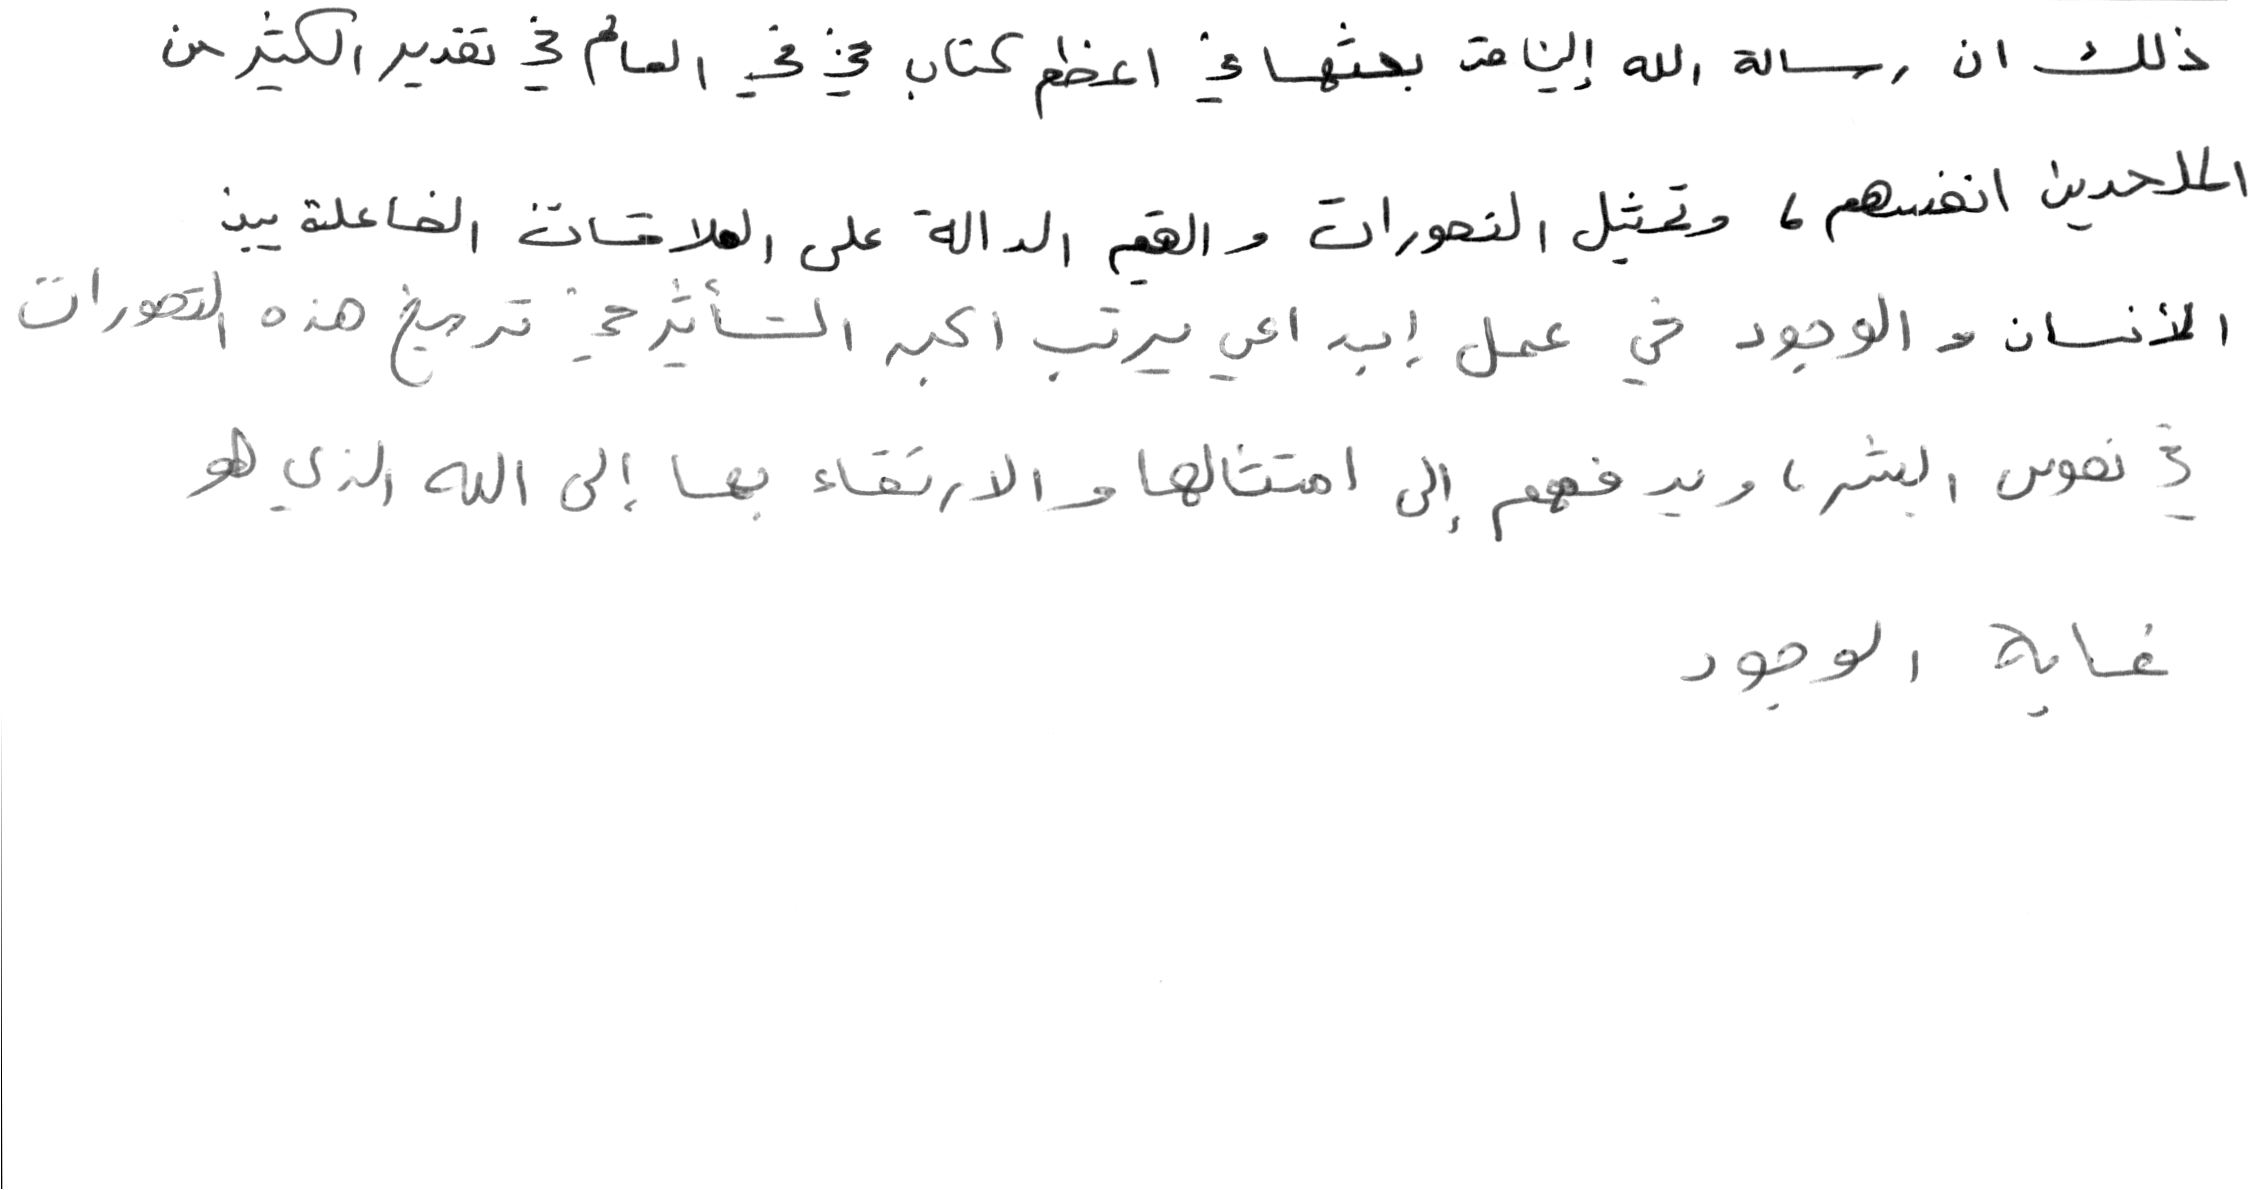 ذلك ان رسالة الله إلينا قد بعثها في اعظم كتاب في في العالم في تقدير الكثير من
الملاحدين انفسهم، وتمثيل التصورات والقيم الدالة على العلاقات الفاعلة بين
الأنسان والوجود في عمل إبداعي يرتب اكبر التأثير في ترسيخ هذه التصورات
في نفوس البشر، ويدفعهم إلى امتثالها والارتقاء بها إلى الله الذي هو
غاية الوجود